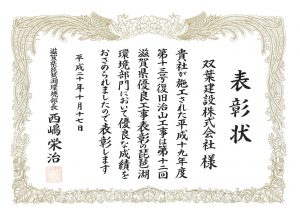 表彰状
双葉建設株式会社 様
貴社が施工された平成十九年度
第十三号復旧治山工事は第十二回
滋賀県優良工事表彰の琵琶湖
環境部門において優良な成績を
おさめられましたので表彰します
平成二十年十月十七日
滋賀県琵琶湖環境部長 西嶋栄治